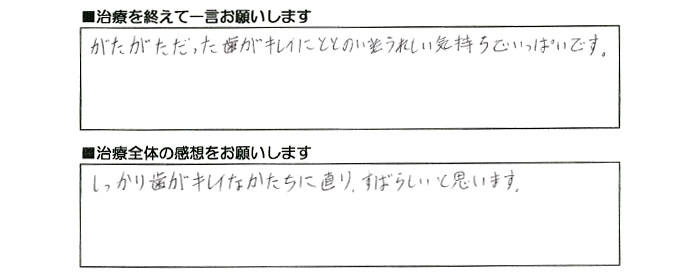 ■治療を終えて一言お願いします
がたがただった歯がキレイにととのいうれしい気持ちでいっぱいです。
■治療全体の感想をお願いします
しっかり歯がキレイなかたちに直り、すばらしいと思います。